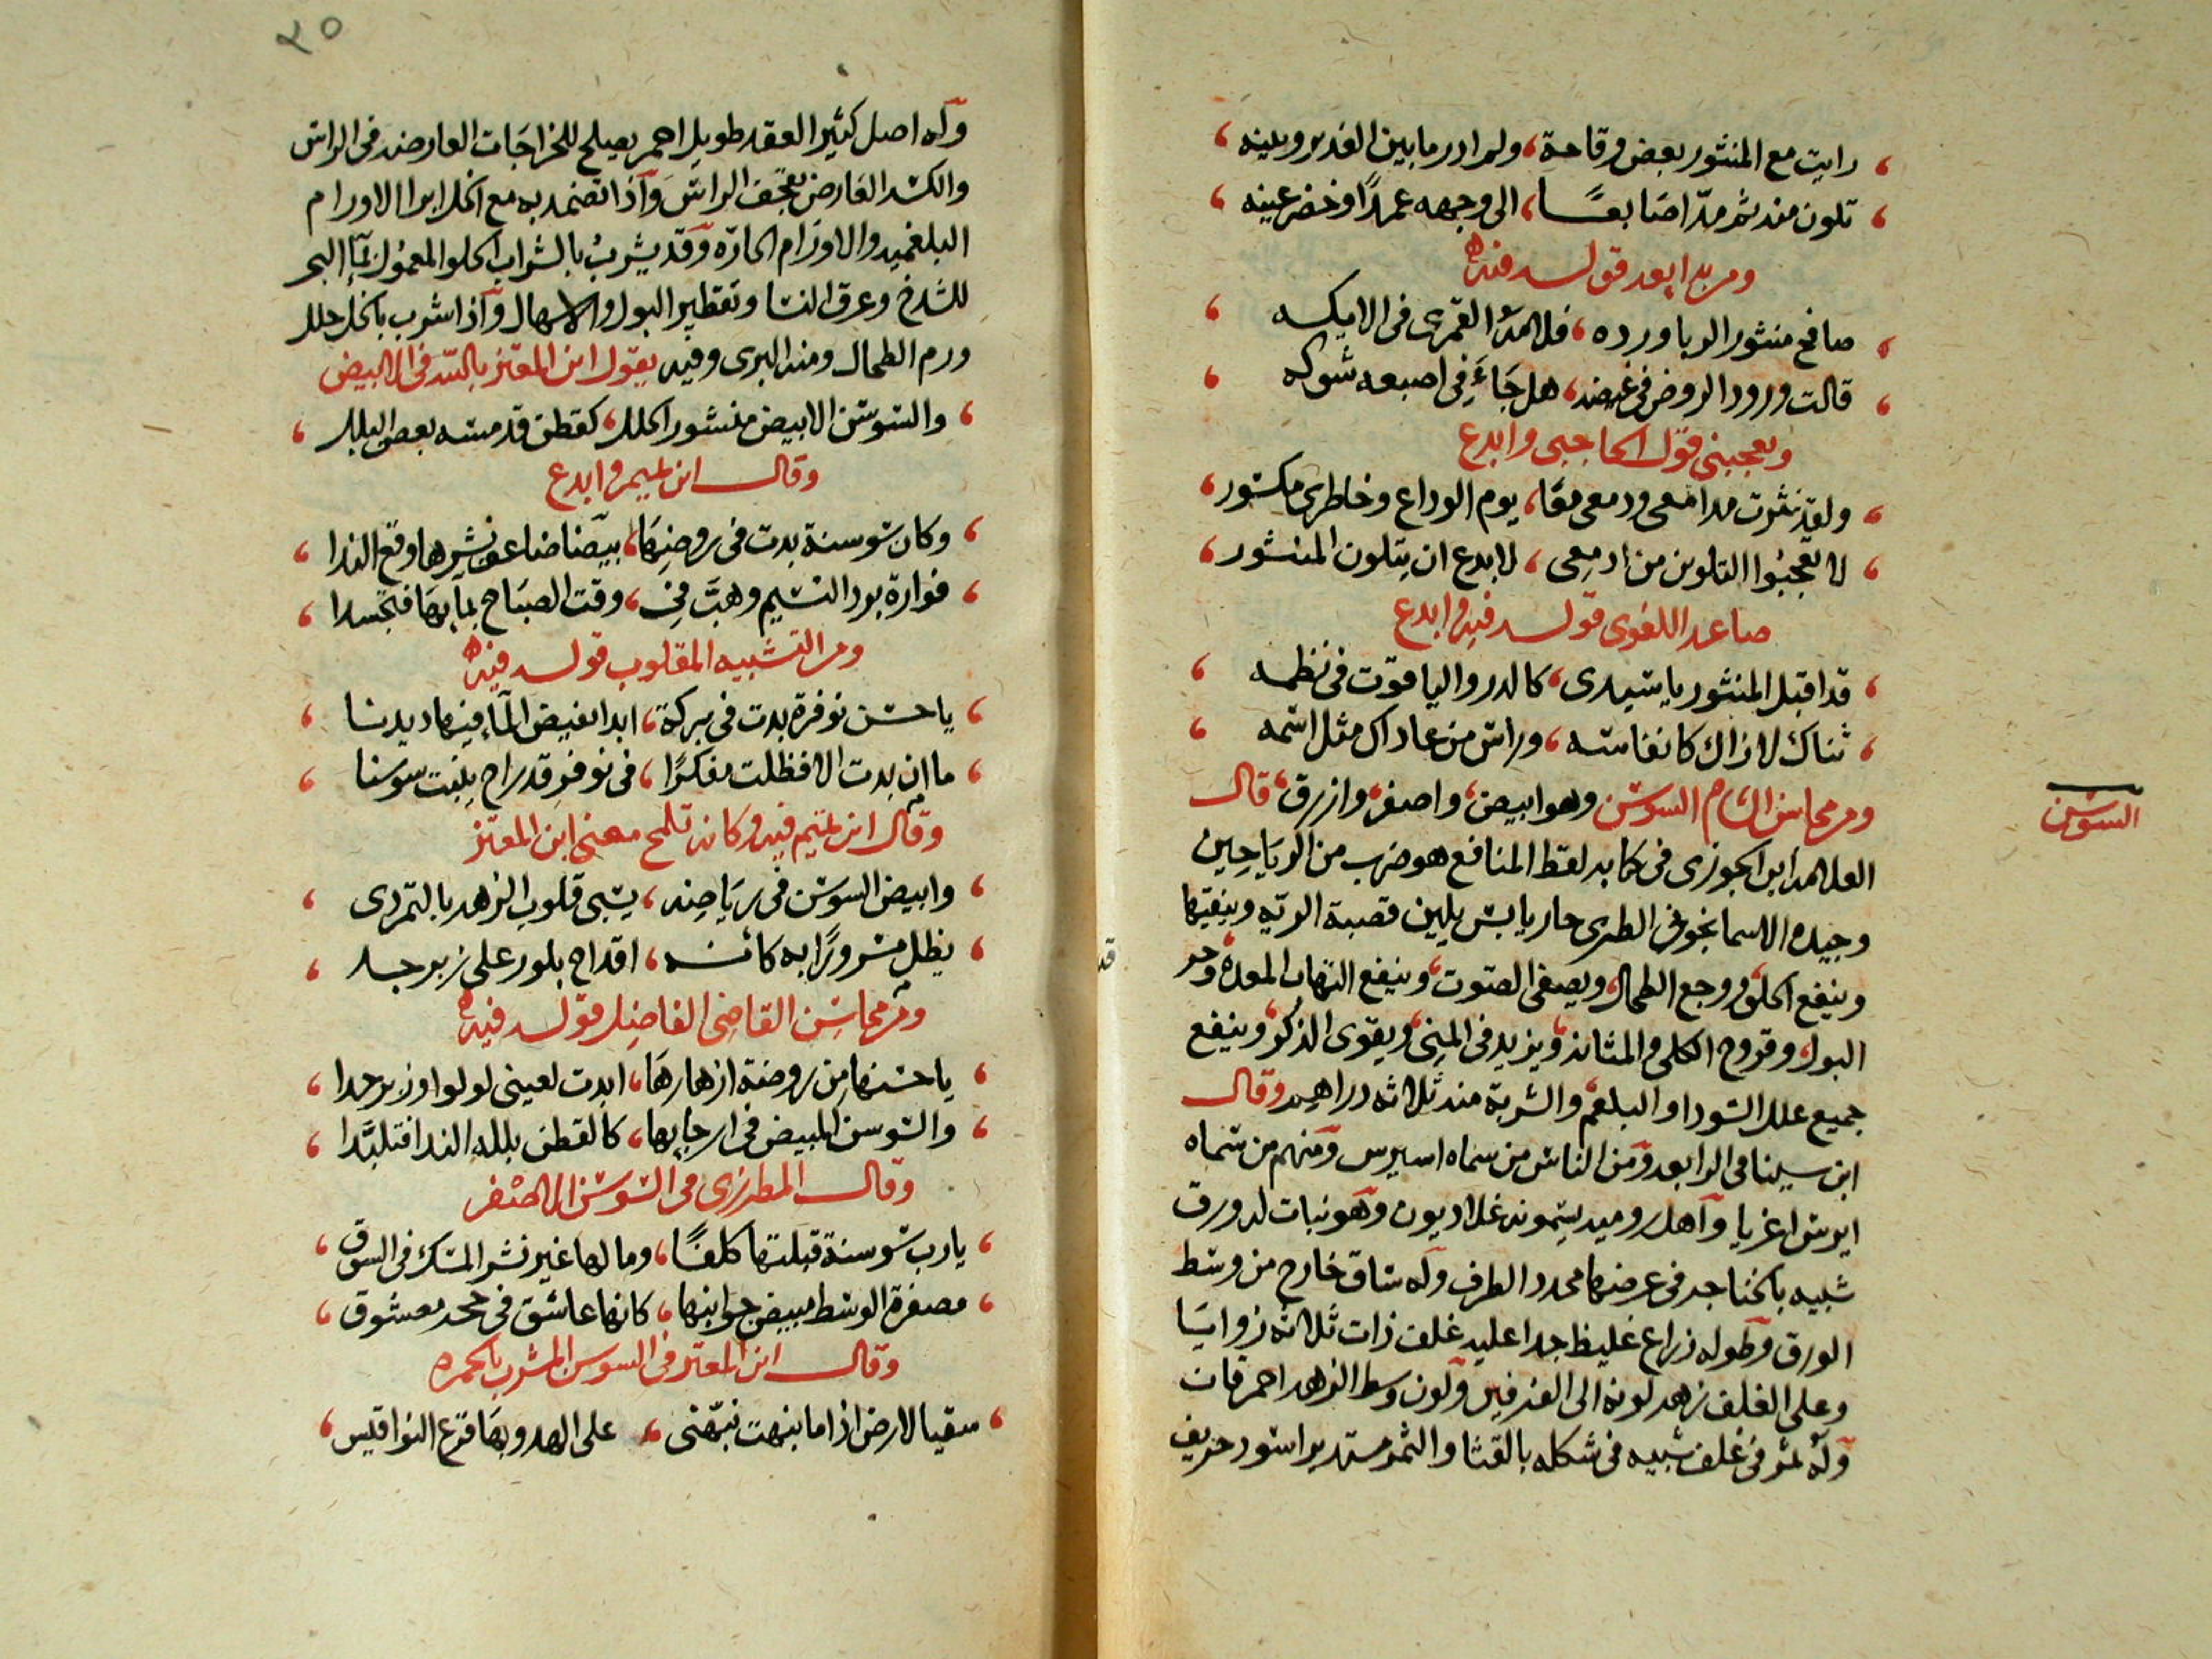 رايت مع المنثور بعض وقاحة، ولم ادر ما بين الغدير وبينه
تلون منه ثم مد اصابعا، الى وجهه عمدًا وخضر عينه
ومن بدايعه قوله فيه
صافح منثور الربا ورده، فلامه القمرى فى الايكه
قالت ورود الروض فى غيضه، هل جاءَ فى اصبعه شوكه
ويعجبنى قول الحاجبى وابدع
ولقد نثرت مدامعى ودمعى معًا، يوم الوداع وخاطرى مكسور
لا تعجبوا لتلون من ادمعى، لا بدع ان يتلون المنثور
صاعد اللغوى قوله فيه وابدع
قد اقبل المنثور يا سيدى، كالدر والياقوت فى نظمه
ثناك لا زال كانفاسه، وراس من عاداك مثل اسمه
ومن محاسن الشام السوسن وهو ابيض، واصفر، وازرق، قال
السوسن
العلامه ابن الجوزى فى كتابه لقط المنافع هو ضرب من الرياحين
وجيده الاسمانجونى الطرى حار يابس يلين قصبة الرية وينقيها
وينفع الحلق ووجع الطحال، ويصفى الصوت، وينفع التهاب المعدة، وحر
قد
البول، وقروح الكلى والمثانه، ويزيد فى المنى، ويقوى الذكر، وينفع
جميع علل السودا والبلغم، والشربة منه ثلاثه دراهم وقال
ابن سينا فى الرابعه ومن الناس من سماه اسيرس ومنهم من سماه
ايرس اغريا واهل روميه يسمونه غلاديون وهو نبات له ورق
شبيه بالخناجر فى عرضها محدد الطرف وله ساق خارج من وسط
الورق وطوله ذراع غليظ جدا عليه غلف ذات ثلاثه زوايا
وعلى الغلف زهر لونه الى الفرفير ولون وسط الزهر احمر قان
وله ثمر فى غلف شبيه فى شكله بالقثا والثمر مستدير اسود حريف
٢٥
وله اصل كثير العقد طويل احمر يصلح للخراجات العارضه فى الراس
والكسر العارض بقحف الراس واذا تضمد به مع الخل ابرا الاورام
البلغميه والاورام الحارّه وقد يشرب بالشراب الحلو المعمول بماء البحر
للشدخ وعرق النسا وتقطير البول والاسهال واذا شرب بالخل حلل
ورم الطحال ومنه البرى وفيه يقول ابن المعتز بالسد فى الابيض
والسوسن الابيض منشور الحلل، كقطن قد مسه بعض البلل
وقال ابن تميم وابدع
وكان سوسنة بدت فى روضها، بيضا ضاعف نشرها وقع الندا
فوارة برد النسيم وهب فى، وقت الصباح بمايها فتجسدا
ومن التشبيه المقلوب قوله فيه
يا حسن نوفرة بدت فى بركة، ابدا لفيض الماء فيها ديدنا
ما ان بدت الا فظلت مفكرًا، فى نوفر قد راح ينبت سوسنا
وقال ابن تميم فيه وكانه تلمح معنى ابن المعتز
وابيض السوسن فى رياضه، يسبى قلوب الزهر بالتمردى
يظل مسرورًا به كانه، اقداح بلور على زبرجد
ومن محاسن القاضى الفاضل قوله فيه
يا حسنها من روضة ازهارها، ابدت لعينى لولوا وزبرجدا
والسوسن المبيض فى ارجايها، كالقطن بلله الندا فتلبّدا
وقال المطرزى فى السوسن الاصفر
يا رب سوسنة قبلتها كلفًا، وما لها غير نشر المسك فى السوق
مصفرة الوسط مبيض جوانبها، كانها عاشق فى حجر معشوق
وقال ابن المعتز فى السوسن المشرب بالحمره
سقيا لارض اذا ما نبهت نبّهنى، على الهدو بها قرع النواقيس